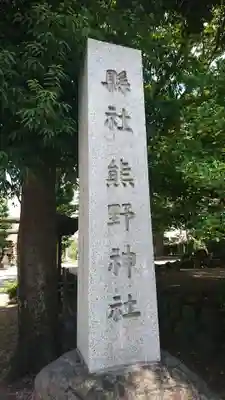 縣社熊野神社